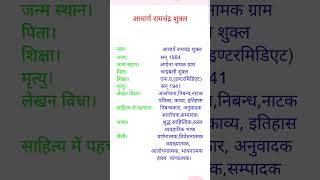 आचार्य रामचंद्र शुक्ल
नाम। आचार्य रामचंद्र शुक्ल
जन्म। सन् 1884
जन्म स्थान। अगोना नामक ग्राम
पिता। चन्द्रबली शुक्ल
शिक्षा। एफ.ए.(इण्टरमिडिएट)
मृत्यु। सन् 1941
लेखन विधा। आलोचना,निबन्ध,नाटक
पत्रिका, काव्य, इतिहास
साहित्य में पहचान। निबन्धकार, अनुवादक
आलोचक,सम्पादक
भाषा। शुद्ध साहित्यिक,सरल
व्यवहारिक भाषा
शैली। वर्णनात्मक,विवेचनात्मक
व्याख्यात्मक,
आलोचनात्मक, भावनात्मक
हास्य व्यंग्यात्मक।
जन्म स्थान।
पिता।
शिक्षा।
मृत्यु।
लेखन विधा।
साहित्य में पह
नामक ग्राम
शुक्ल
टरमिडिएट)
निबन्ध,नाटक
काव्य, इतिहास
अनुवादक